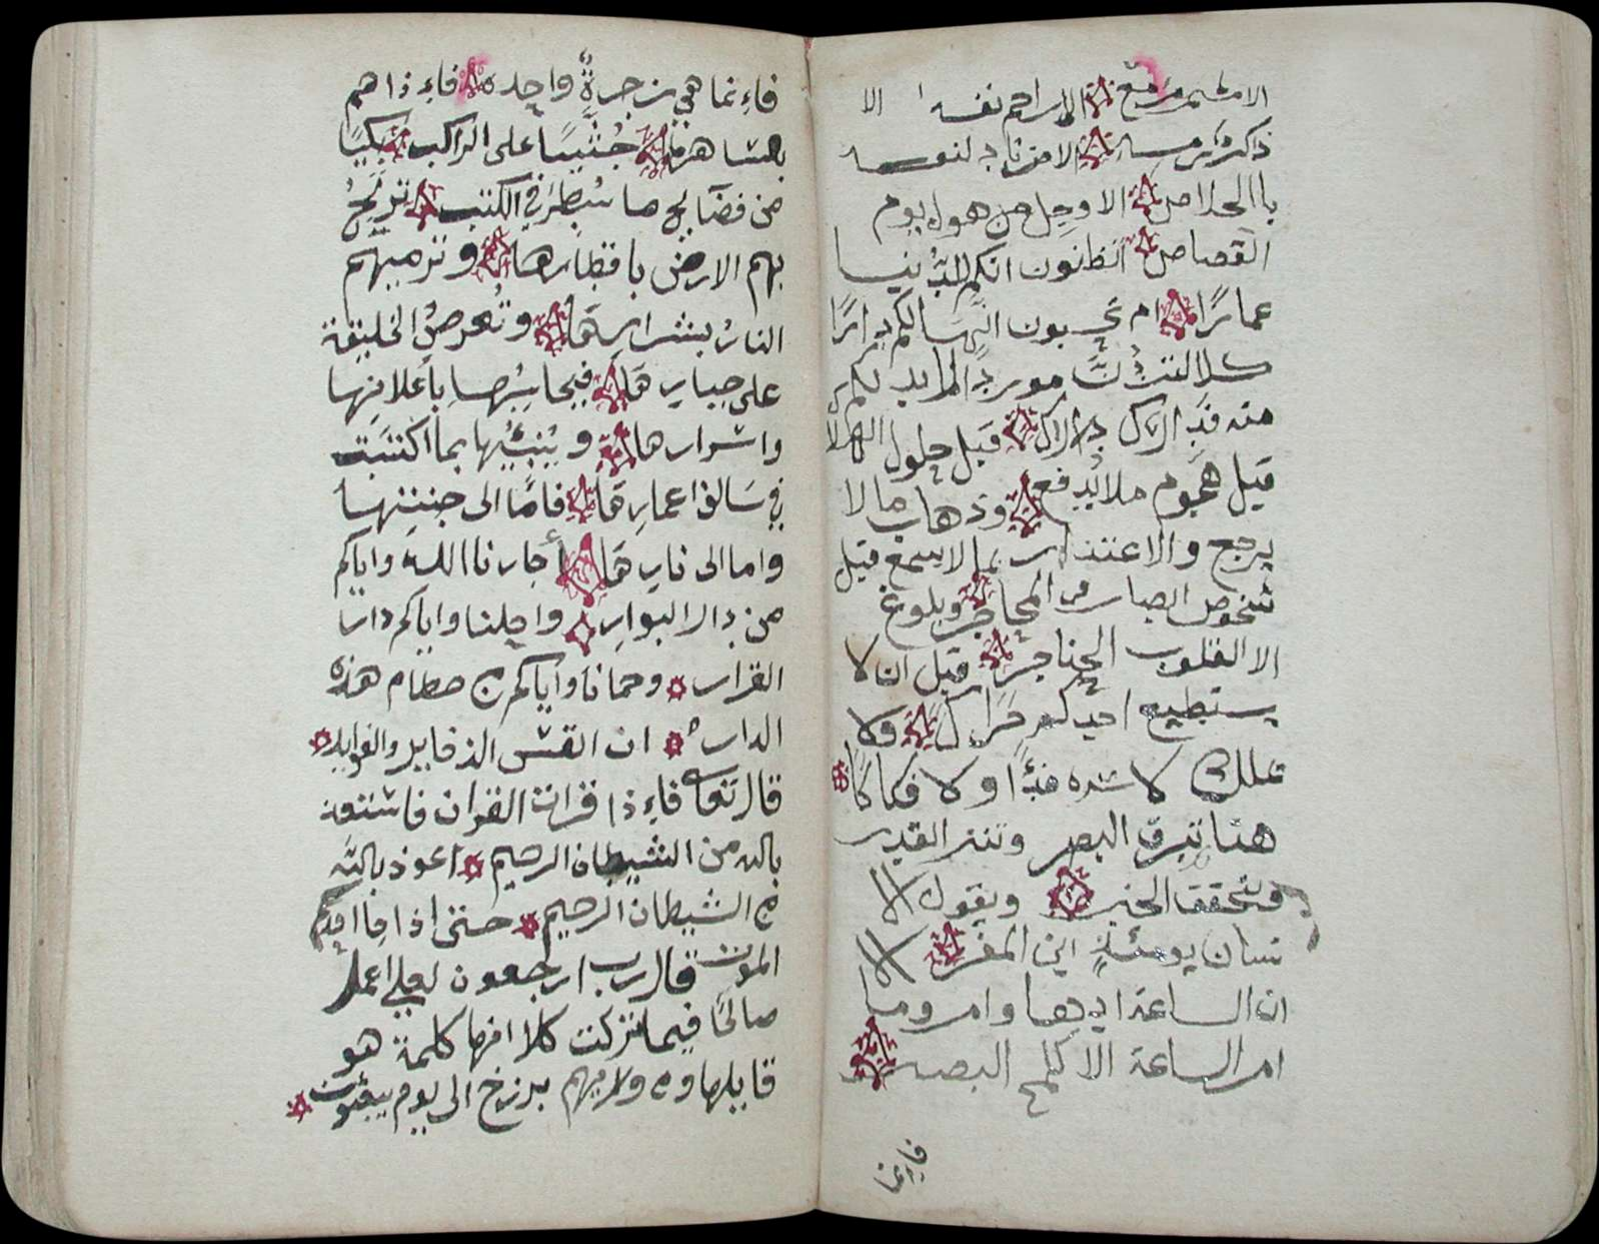 الا مشمر مع الا راحم نفسه الا
ذكر الا من ناد لنفسه
باالخلاص الا وجل من هول يوم
القصاص اتظنون انكم للدنيا
عمارًا ام تحسبون انها لكم دارًا
كلا لتردن موردا لابد لكم
منه قبل حلول
قبل هجوم ملا يدفع وذهاب مالا
يرجع والاعتذار بما لا يسمع قبل
شخوص ابصار المحاجر وبلوغ
الا القلوب الحناجر قبل ان لا
يستطيع احدكم حراكًا ولا
تملك لاسره فدًا ولا فكاكًا
هنا تبرق البصر وتنز القدر
وتتحقق الخبر ويقول الا
نسان يومئذٍ اين المفر الا
ان الساعة ادهى وامر وما
امر الساعة الا كلمح البصر
فاءنما
فاءنما هي زجرةٌ واحده فاءذا هم
بالساهره جُثيًا على الراكب بكيًا
من فضايح ما سُطِرَ في الكتب ترتجُ
بهم الارض باقطارها وترميهم
النارُ بشرارِهَا وتُعرضُ الخليقة
على جبارِهَا فيحاسِبُهاِ باعلانِها
واسرارها ويُنَبِئُيها بما اكتسَبت
في سَالف اعمارِهَا فامَّا الى جنتِها
واما الى نارِهَا أجارنا الله واياكم
من دار البوارِ واحلنا واياكم دار
القرار وحمانا واياكم من حطام هذه
الدار ان القس الذخاير والفوايد
قال تعالى فاءذا قرات القران فاستعذ
بالله من الشيطان الرجيم اعوذ بالله
من الشيطان الرجيم حتى اذا جاا احدكم
الموت قال رب ارجعون لعلي اعمل
صالحًا فيما تركت كلا انها كلمة هو
قايلها ومن ورايهم برزخ الى يوم يبعثون